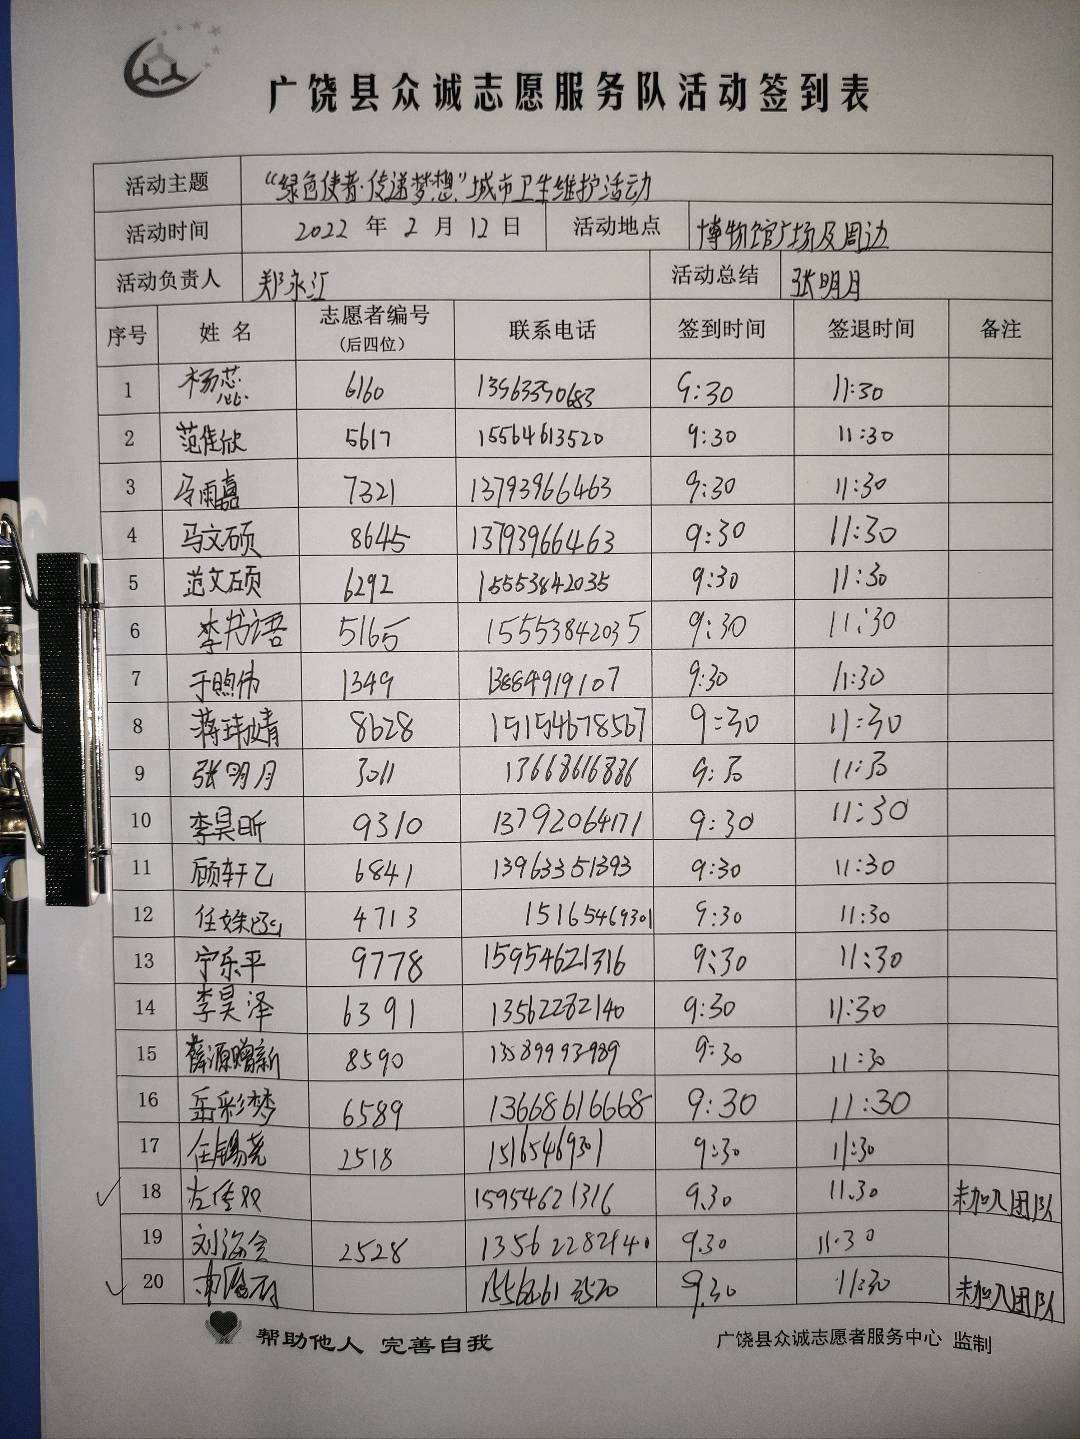 广饶县众诚志愿服务队活动签到表
活动主题 “绿色使者·传递梦想”城市卫生维护活动
活动时间 2022 年 2 月 12 日 活动地点 博物馆广场及周边
活动负责人 郑永江 活动总结 张明月
序号 姓名 志愿者编号 联系电话 签到时间 签退时间 备注
(后四位)
1 杨蕊 6160 13963390683 9:30 11:30
2 范佳欣 5617 15564613520 9:30 11:30
3 马雨嘉 7321 13793966463 9:30 11:30
4 马文硕 8645 13793966463 9:30 11:30
5 范文硕 6292 15553842035 9:30 11:30
6 李书语 5165 15553842035 9:30 11:30
7 于煦伟 1349 13884919107 9:30 11:30
8 蒋玮婧 8628 15154678567 9:30 11:30
9 张明月 3011 13668616886 9:30 11:30
10 李昊昕 9310 13792064171 9:30 11:30
11 顾轩乙 6841 13963351393 9:30 11:30
12 任姝 4713 15165469301 9:30 11:30
13 宁乐平 9778 15954621316 9:30 11:30
14 李昊泽 6391 13562282140 9:30 11:30
15 薛源赠新 8590 13589993989 9:30 11:30
16 岳彩梦 6589 13668616668 9:30 11:30
17 任锡尧 2518 15165469301 9:30 11:30
18 左佳双 15954621316 9.30 11.30 未加入团队
19 刘海会 2528 13562282140 9.30 11.30
20 15564613520 9.30 11:30 未加入团队
帮助他人 完善自我
广饶县众诚志愿者服务中心 监制